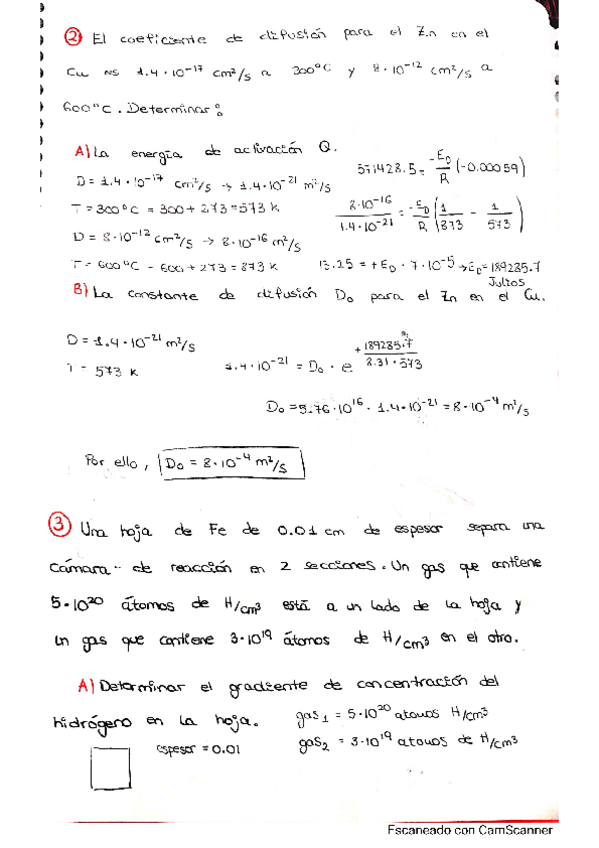 2 El coeficiente de difusión para el Zn en el
Cu es 1.4·10⁻¹⁷ cm²/s a 300ºC y 8·10⁻¹² cm²/s a
600ºC. Determinar:
A) La energía de activación Q.
571428.5 = -E_D/R (-0.00059)
D = 1.4·10⁻¹⁷ cm²/s → 1.4·10⁻²¹ m²/s
T = 300ºC = 300 + 273 = 573 K
8·10⁻¹⁶/1.4·10⁻²¹ = -E_D/R (1/873 - 1/573)
D = 8·10⁻¹² cm²/s → 8·10⁻¹⁶ m²/s
T = 600ºC = 600 + 273 = 873 K
13.25 = + E_D · 7·10⁻⁵ → E_D = 189285.7
Julios
B) La constante de difusión D₀ para el Zn en el Cu.
D = 1.4·10⁻²¹ m²/s
T = 573 K
1.4·10⁻²¹ = D₀ · e^(+189285.7/8.31·573)
D₀ = 5.76·10¹⁶ · 1.4·10⁻²¹ = 8·10⁻⁴ m²/s
Por ello, D₀ = 8·10⁻⁴ m²/s
3 Una hoja de Fe de 0.01 cm de espesor separa una
cámara de reacción en 2 secciones. Un gas que contiene
5·10²⁰ átomos de H/cm³ está a un lado de la hoja y
un gas que contiene 3·10¹⁹ átomos de H/cm³ en el otro.
A) Determinar el gradiente de concentración del
hidrógeno en la hoja.
gas₁ = 5·10²⁰ atomos H/cm³
espesor = 0.01
gas₂ = 3·10¹⁹ atomos de H/cm³
Escaneado con CamScanner